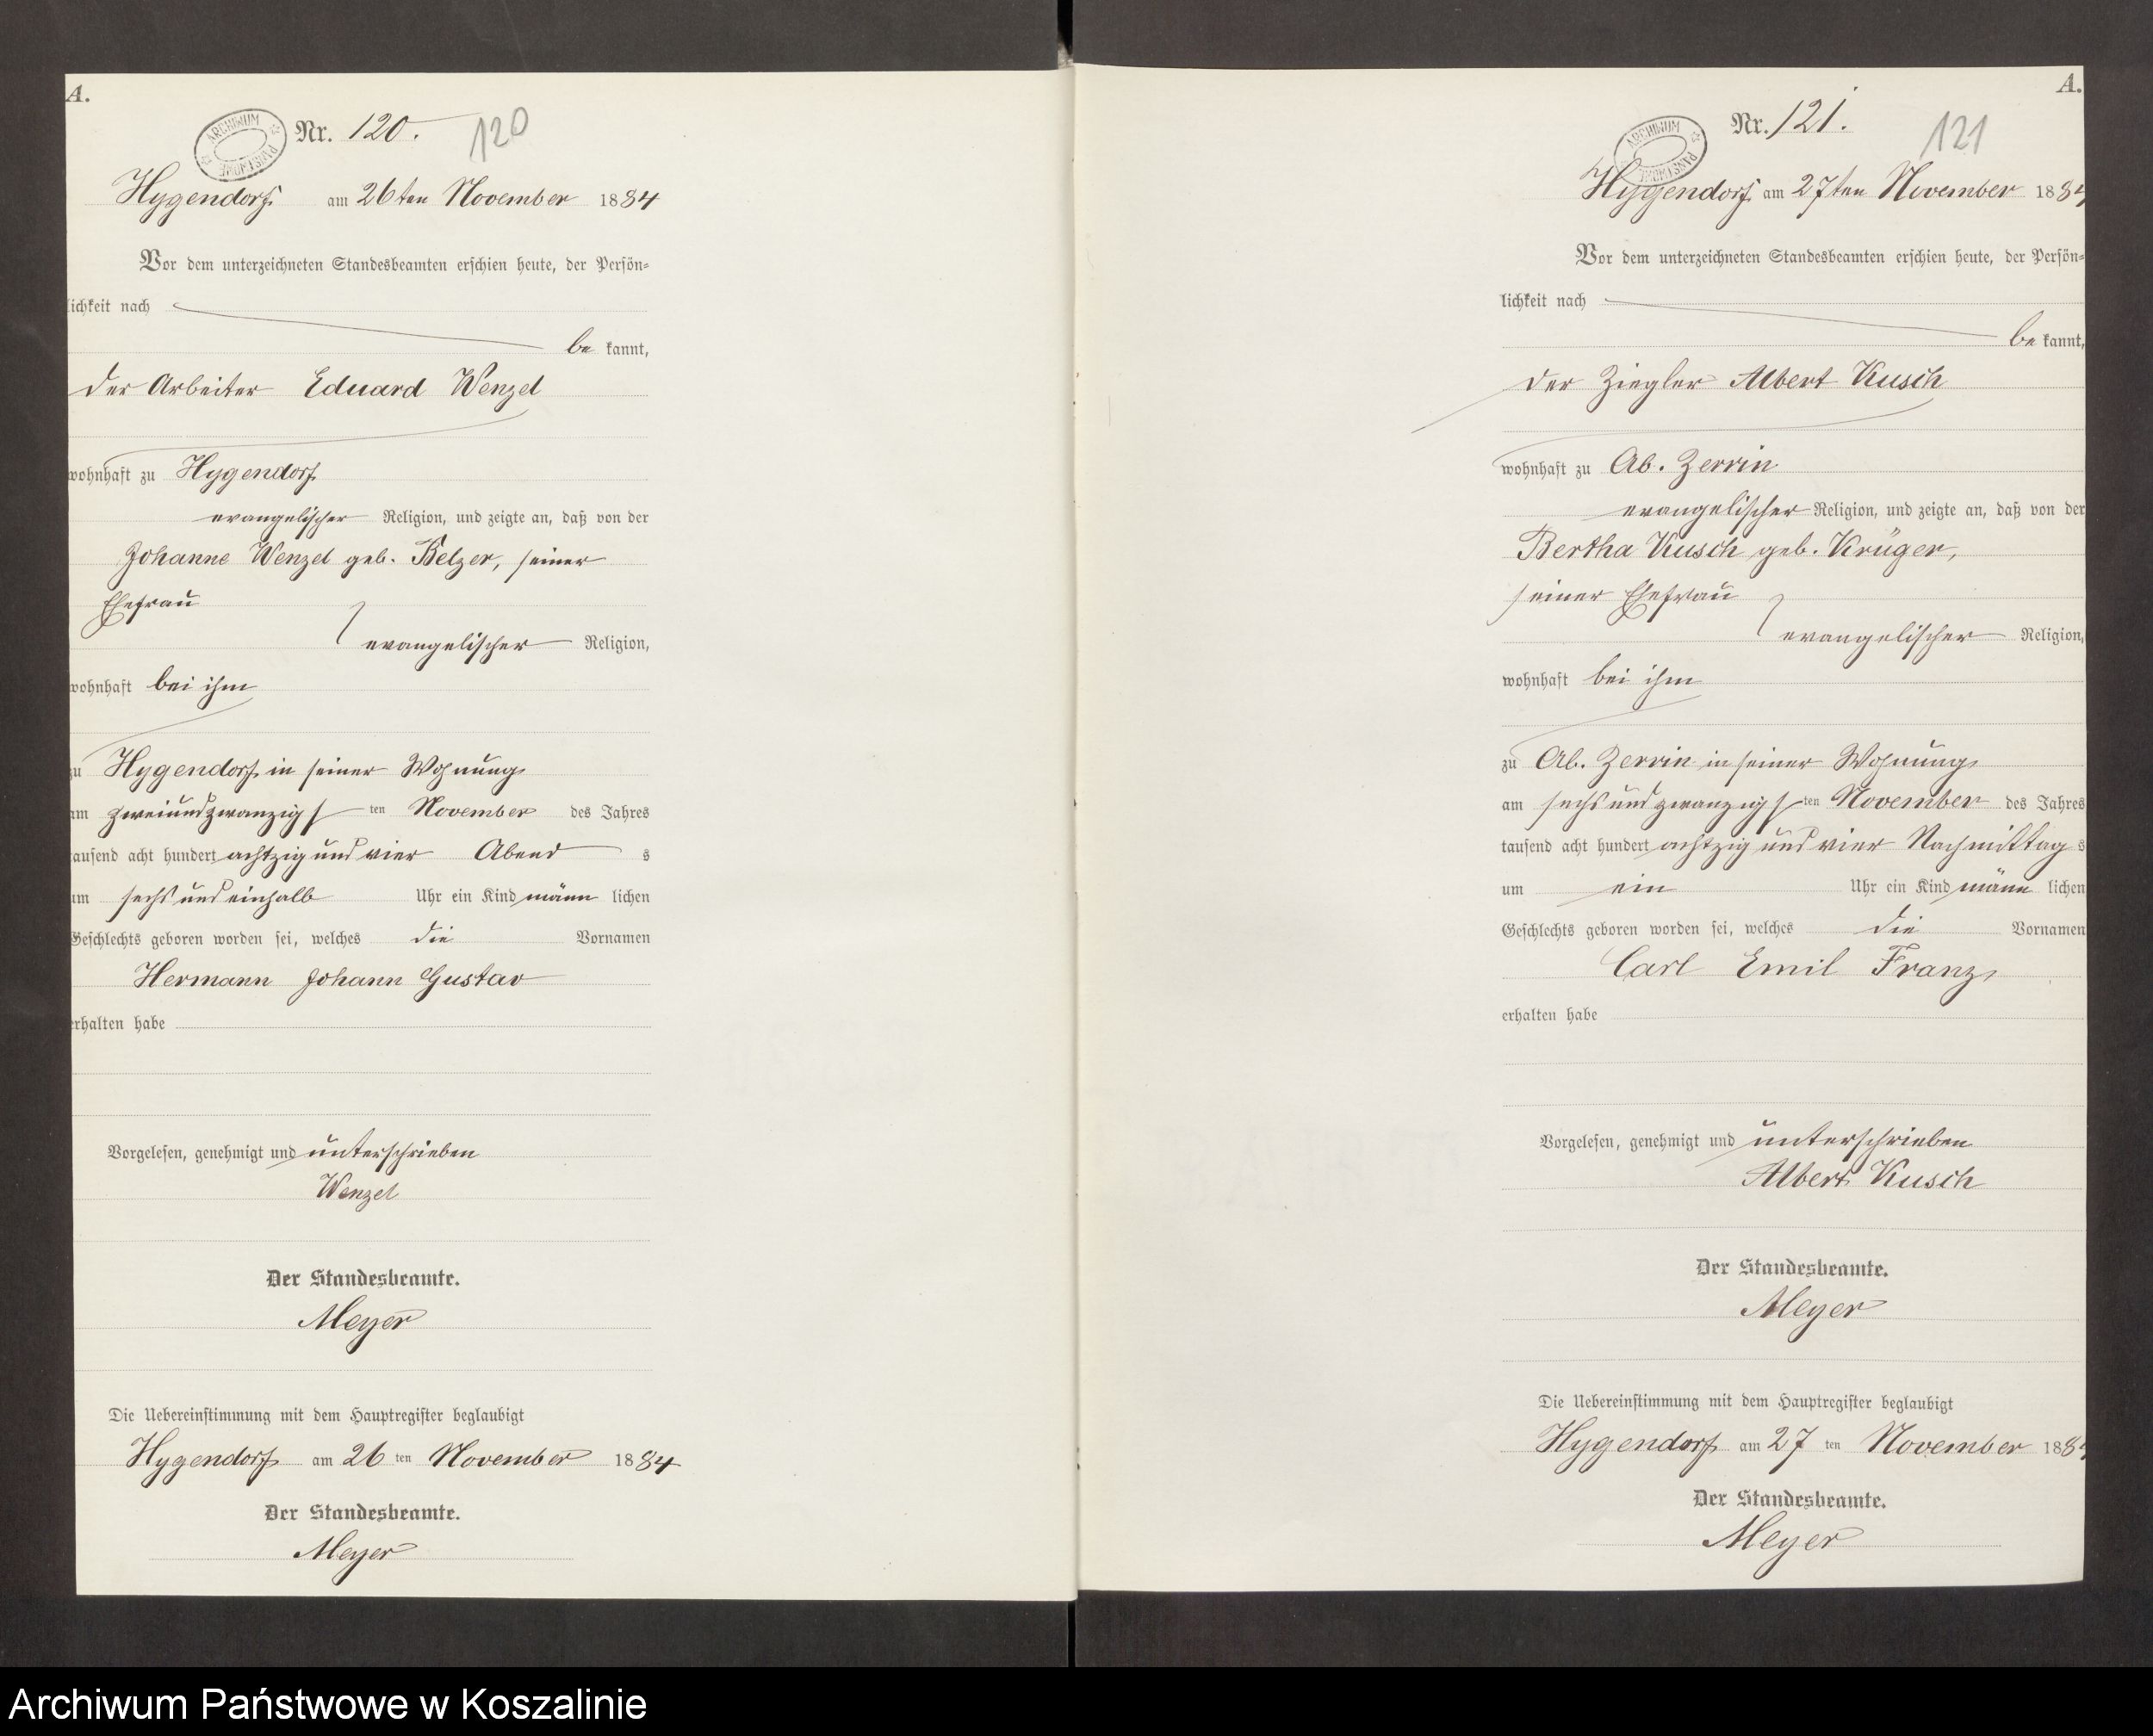 A.
ARCHIWUM PAŃSTWOWE
Nr. 120. 120
Hygendorf am 26ten November 1884
Vor dem unterzeichneten Standesbeamten erschien heute, der Persön-
lichkeit nach
be kannt,
der Arbeiter Eduard Wenzel
wohnhaft zu Hygendorf
evangelischer Religion, und zeigte an, daß von der
Johanne Wenzel geb. Belzer, seiner
Ehefrau
evangelischer Religion,
wohnhaft bei ihm
zu Hygendorf in seiner Wohnung
am zweiundzwanzigs ten November des Jahres
tausend acht hundert achtzig und vier Abend s
um sechs und einhalb Uhr ein Kind männ lichen
Geschlechts geboren worden sei, welches die Vornamen
Hermann Johann Gustav
erhalten habe
Vorgelesen, genehmigt und unterschrieben
Wenzel
Der Standesbeamte.
Meyer
Die Uebereinstimmung mit dem Hauptregister beglaubigt
Hygendorf am 26 ten November 1884
Der Standesbeamte.
Meyer
A.
ARCHIWUM PAŃSTWOWE
Nr. 121. 121
Hygendorf am 27ten November 1884
Vor dem unterzeichneten Standesbeamten erschien heute, der Persön-
lichkeit nach
be kannt,
der Ziegler Albert Kusch
wohnhaft zu Ab. Zerrin
evangelischer Religion, und zeigte an, daß von der
Bertha Kusch geb. Krüger,
seiner Ehefrau
evangelischer Religion,
wohnhaft bei ihm
zu Ab. Zerrin in seiner Wohnung
am sechs und zwanzigs ten November des Jahres
tausend acht hundert achtzig und vier Nachmittag s
um ein Uhr ein Kind männ lichen
Geschlechts geboren worden sei, welches die Vornamen
Carl Emil Franz,
erhalten habe
Vorgelesen, genehmigt und unterschrieben
Albert Kusch
Der Standesbeamte.
Meyer
Die Uebereinstimmung mit dem Hauptregister beglaubigt
Hygendorf am 27 ten November 1884
Der Standesbeamte.
Meyer
Archiwum Państwowe w Koszalinie